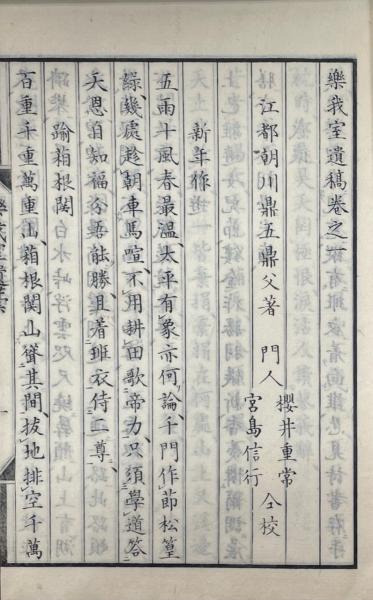 樂我室遺稿卷之一
江都朝川鼎五鼎父著 門人 櫻井重常 仝校
宮島信行
新年作
五雨十風春最温太平有象亦何論千門作節松篁
綠幾處趁朝車馬喧不用耕田歌帝力只須學道答
天恩自知福分吾能勝且着班衣侍二尊
踰箱根関
百重千重萬重山箱根関山當其間拔地排空千萬